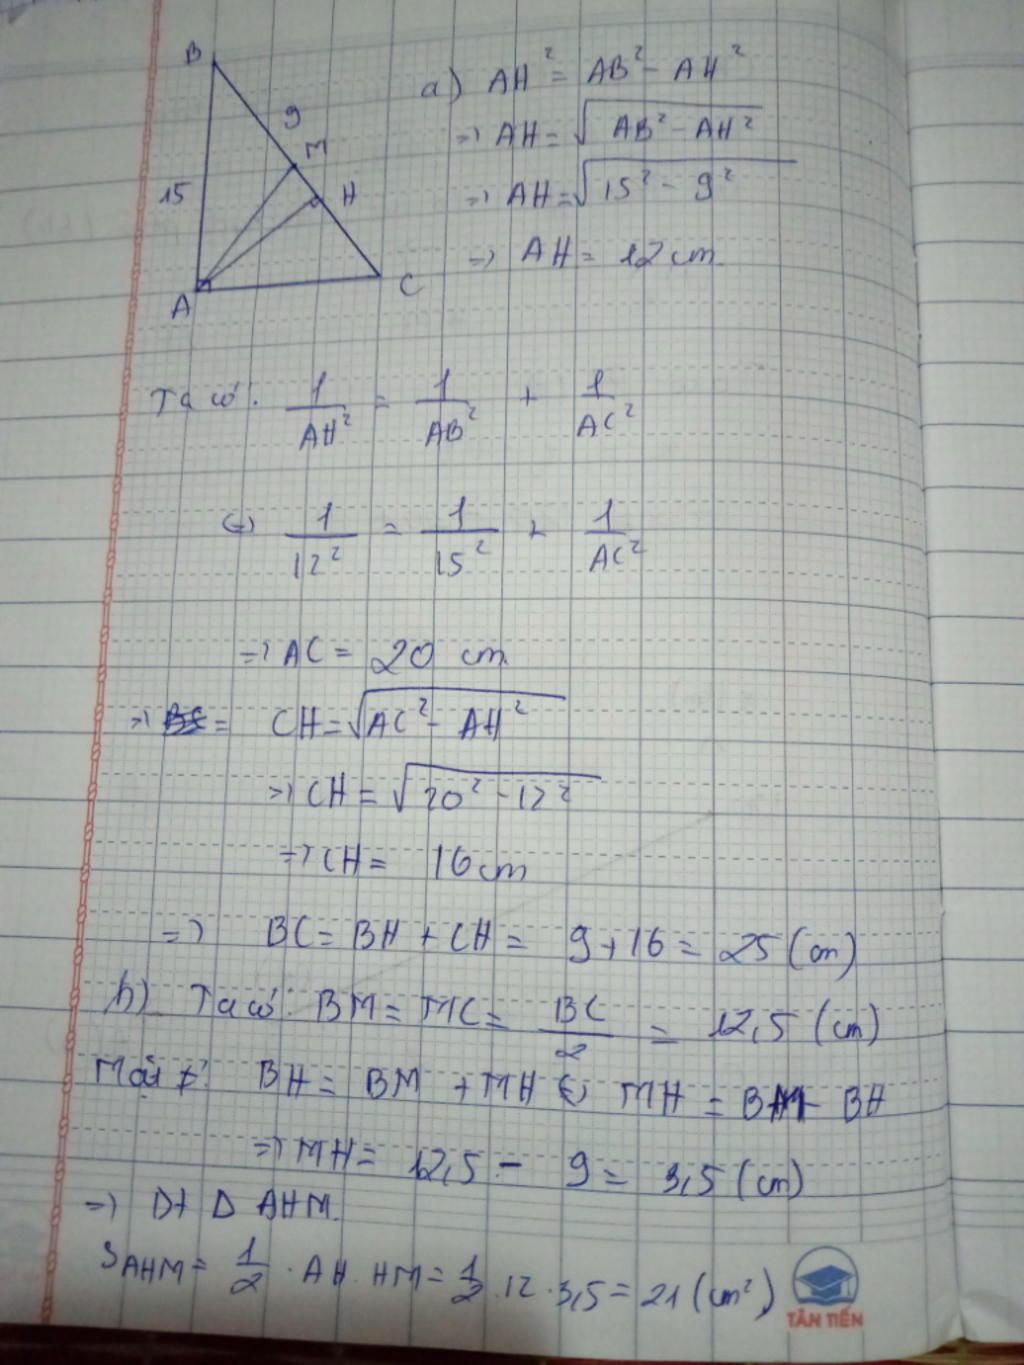 B
9
M
15
H
A
C
a) AH² = AB² - AH²
=> AH = √AB² - AH²
=> AH = √15² - 9²
=> AH = 12 cm
Ta có: 1/AH² = 1/AB² + 1/AC²
<=> 1/12² = 1/15² + 1/AC²
=> AC = 20 cm
=> = CH = √AC² - AH²
=> CH = √20² - 12²
=> CH = 16 cm
=> BC = BH + CH = 9 + 16 = 25 (cm)
b) Ta có: BM = MC = BC/2 = 12,5 (cm)
BH = BM + MH <=> MH = BM - BH
=> MH = 12,5 - 9 = 3,5 (cm)
=> Dt Δ AHM.
SAHM = 1/2 . AH . HM = 1/2 . 12 . 3,5 = 21 (cm²)
TÂN TIẾN